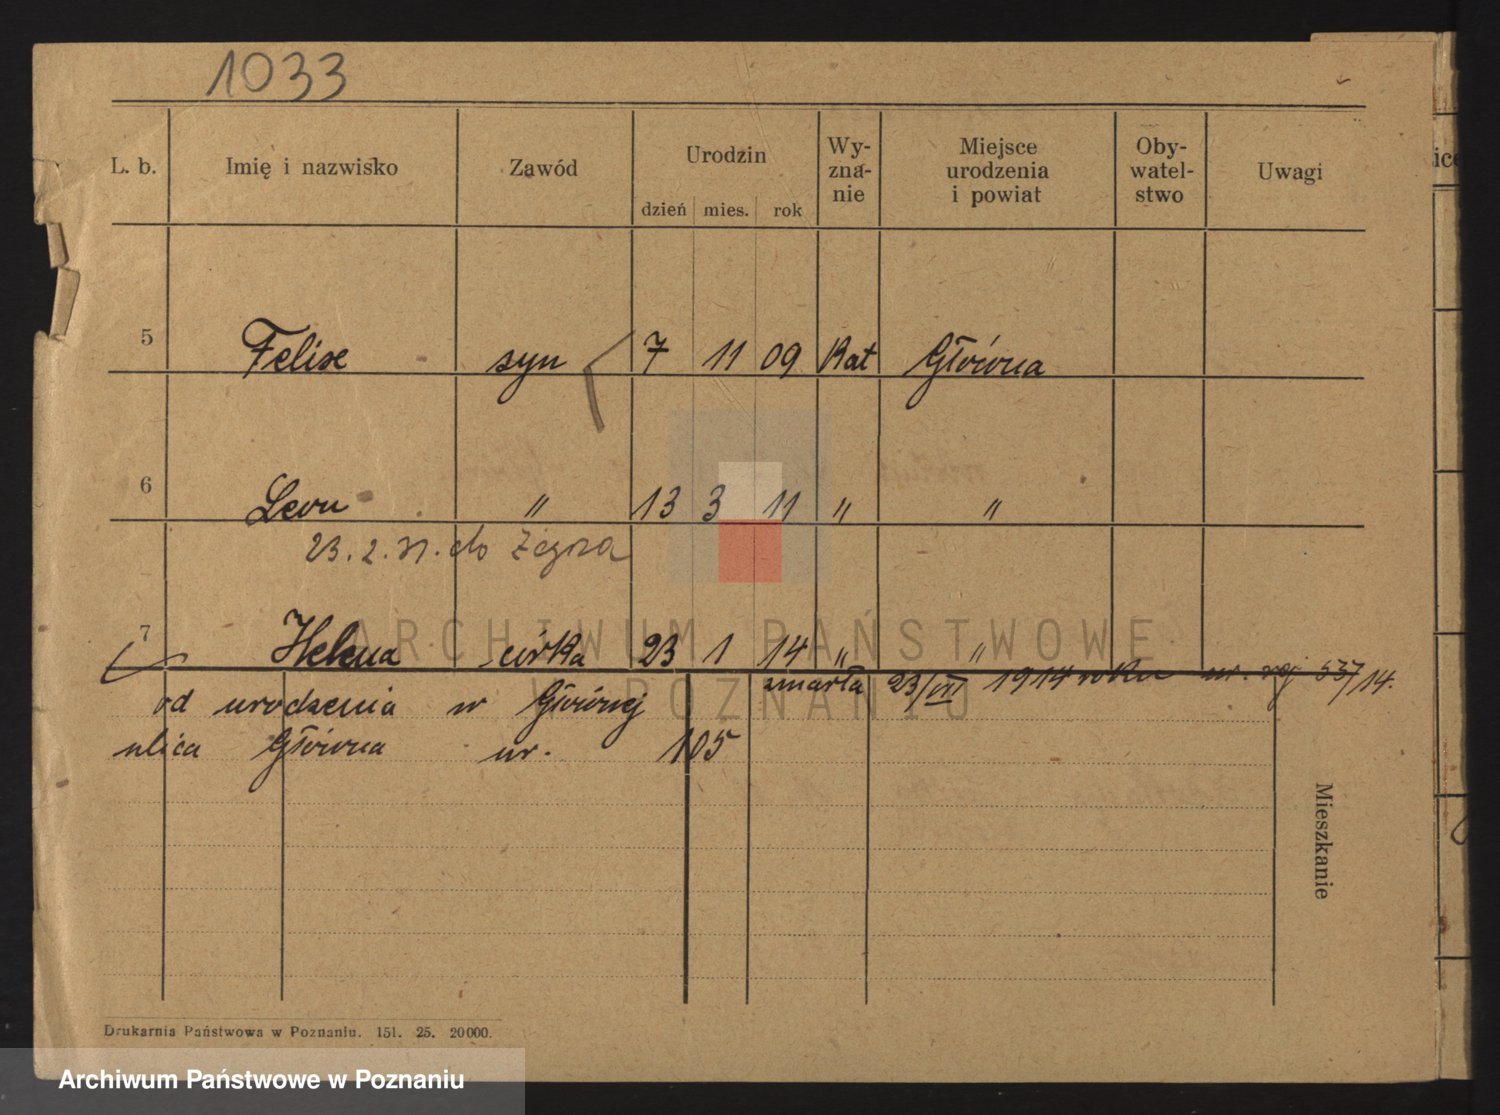 1033
L. b. Imię i nazwisko Zawód Urodzin Wy- zna- nie Miejsce urodzenia i powiat Oby- watel- stwo Uwagi
dzień mies. rok
5 Felix syn 7 11 09 Kat Główna
6 Leon " 13 3 11 " "
23. 2. 31. do Zegrza
7 Helena córka 23 1 14 " "
zmarła 23/VII 1914 roku nr. rej 537/14.
od urodzenia w Głównej
ulica Główna nr. 105
Mieszkanie
Drukarnia Państwowa w Poznaniu. 151. 25. 20000.
ARCHIWUM PAŃSTWOWE
W POZNANIU
Archiwum Państwowe w Poznaniu